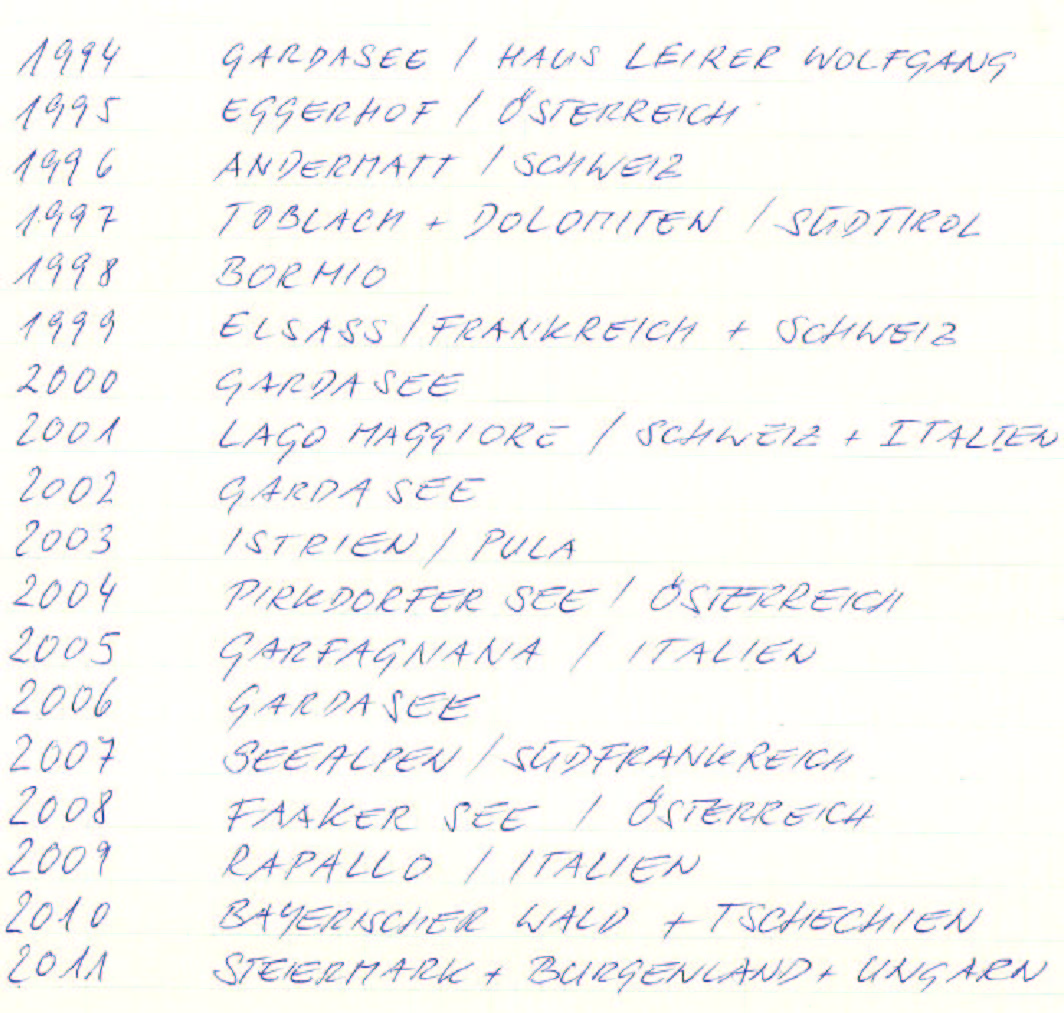 1994 GARDASEE / HAUS LEIRER WOLFGANG
1995 EGGERHOF / ÖSTERREICH
1996 ANDERMATT / SCHWEIZ
1997 TOBLACH + DOLOMITEN / SÜDTIROL
1998 BORMIO
1999 ELSASS / FRANKREICH + SCHWEIZ
2000 GARDASEE
2001 LAGO MAGGIORE / SCHWEIZ + ITALIEN
2002 GARDASEE
2003 ISTRIEN / PULA
2004 PIRKDORFER SEE / ÖSTERREICH
2005 GARFAGNANA / ITALIEN
2006 GARDASEE
2007 SEEALPEN / SÜDFRANKREICH
2008 FAAKER SEE / ÖSTERREICH
2009 RAPALLO / ITALIEN
2010 BAYERISCHER WALD + TSCHECHIEN
2011 STEIERMARK + BURGENLAND + UNGARN